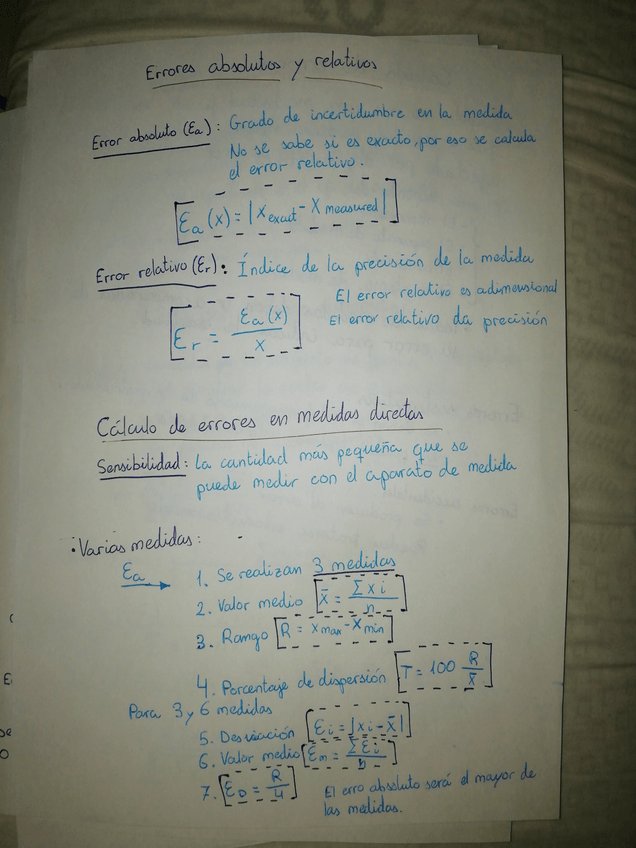 Errores absolutos y relativos
Error absoluto (Ea): Grado de incertidumbre en la medida
No se sabe si es exacto, por eso se calcula
el error relativo.
Ɛa (x) = |x exact - x measured|
Error relativo (Ɛr): Índice de la precisión de la medida
El error relativo es adimensional
El error relativo da precisión
Ɛr = Ɛa (x) / x
Cálculo de errores en medidas directas
Sensibilidad: La cantidad más pequeña que se
puede medir con el aparato de medida
· Varias medidas:
Ɛa → 1. Se realizan 3 medidas
2. Valor medio x̄ = Σ xi / n
3. Rango R = x max - x min
4. Porcentaje de dispersión T = 100 R / x̄
Para 3 y 6 medidas
5. Desviación Ɛi = |xi - x̄|
6. Valor medio Ɛm = Σ Ɛi / n
7. ƐD = R / 4
El erro absoluto será el mayor de
las medidas.